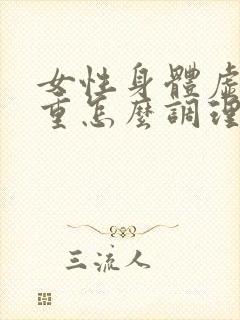 女性身體虛
重怎麼調理
三流人